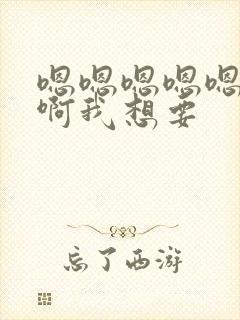 嗯嗯嗯嗯嗯
啊我想要
忘了西游